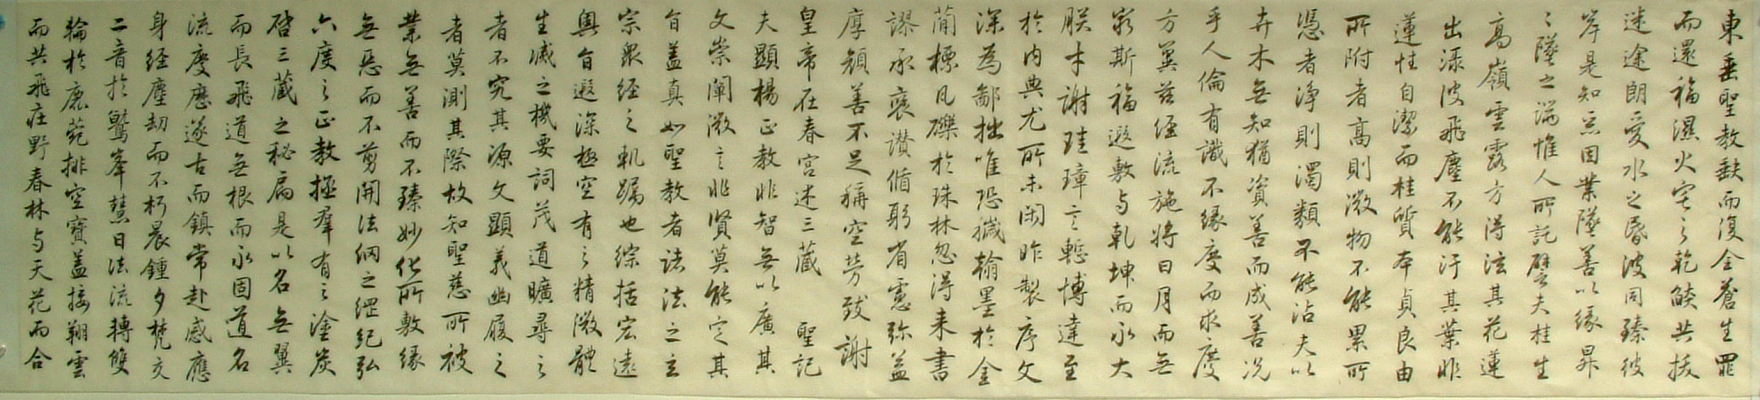 東垂聖教缺而復全蒼生罪
而還福濕火宅之乾焰共拔
迷途朗愛水之昏波同臻彼
岸是知惡因業墜善以緣昇
〻墜之端惟人所託譬夫桂生
高嶺雲露方得泫其花蓮
出淥波飛塵不能汙其葉非
蓮性自潔而桂質本貞良由
所附者高則微物不能累所
憑者淨則濁類不能沾夫以
卉木無知猶資善而成善況
乎人倫有識不緣慶而求慶
方冀茲經流施將日月而無
窮斯福遐敷與乾坤而永大
朕才謝珪璋言慙博達至
於內典尤所未閑昨製序文
深為鄙拙唯恐穢翰墨於金
簡標瓦礫於珠林忽得來書
謬承褒讚循躬省慮彌益
厚顏善不足稱空勞致謝
皇帝在春宮述三藏 聖記
夫顯揚正教非智無以廣其
文崇闡微言非賢莫能定其
旨蓋真如聖教者諸法之玄
宗眾經之軌躅也綜括宏遠
奧旨遐深極空有之精微體
生滅之機要詞茂道曠尋之
者不究其源文顯義幽履之
者莫測其際故知聖慈所被
業無善而不臻妙化所敷緣
無惡而不剪開法網之綱紀弘
六度之正教拯羣有之塗炭
啓三藏之秘扃是以名無翼
而長飛道無根而永固道名
流慶歷遂古而鎮常赴感應
身經塵劫而不朽晨鍾夕梵交
二音於鷲峯慧日法流轉雙
輪於鹿菀排空寶蓋接翔雲
而共飛莊野春林與天花而合